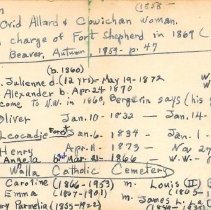 (1858-
Ovid Allard & Cowichan Woman.
in charge of Fort Shepherd in 1869 (
Beaver, Autumn 1959 - p. 47
(b. 1860)
Julienne d. (12 yrs) - May 19 - 1872 W.
Alexander b. Apr. 24 1870 W.
come to N.W. in 1860, Bergevin says (his
Oliver Jan. 10 - 1832 - Jan. 14 -
Locadie Jan. 6 - 1834 - Jan. 1 -
Henry Apr. 11 - 1873 - Nov 27
Angela Mar. 21 - 1866 W.W.
Walla Catholic Cemetery
Caroline (1866-1953) m - Louis (II)
Emma (1887-1901) m - James L.
Parmelia (1855-1922)